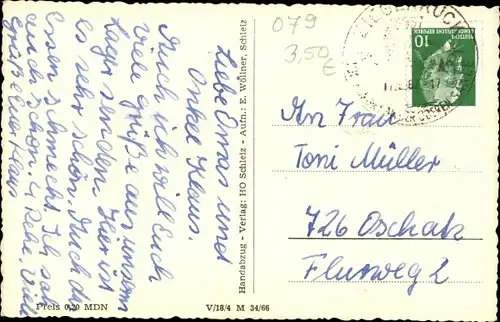 Liebe Omas und
Onkel Klaus.
Auch ich will Euch
viele Grüße aus unserm
Lager senden. Hier ist
es sehr schön. Auch das
Essen schmeckt. Ich sah
auch schon 4 Rehe. Viele
Grüße Euer Klaus
Preis 0,20 MDN
V/18/4 M 34/66
Handabzug - Verlag: HO Schleiz - Aufn.: E. Wöllner, Schleiz
079
3,50
€
ZIEGENRÜCK
10
DEUTSCHE
DEMOKRATISCHE REPUBLIK
An Frau
Toni Müller
726 Oschatz
Flurweg 2